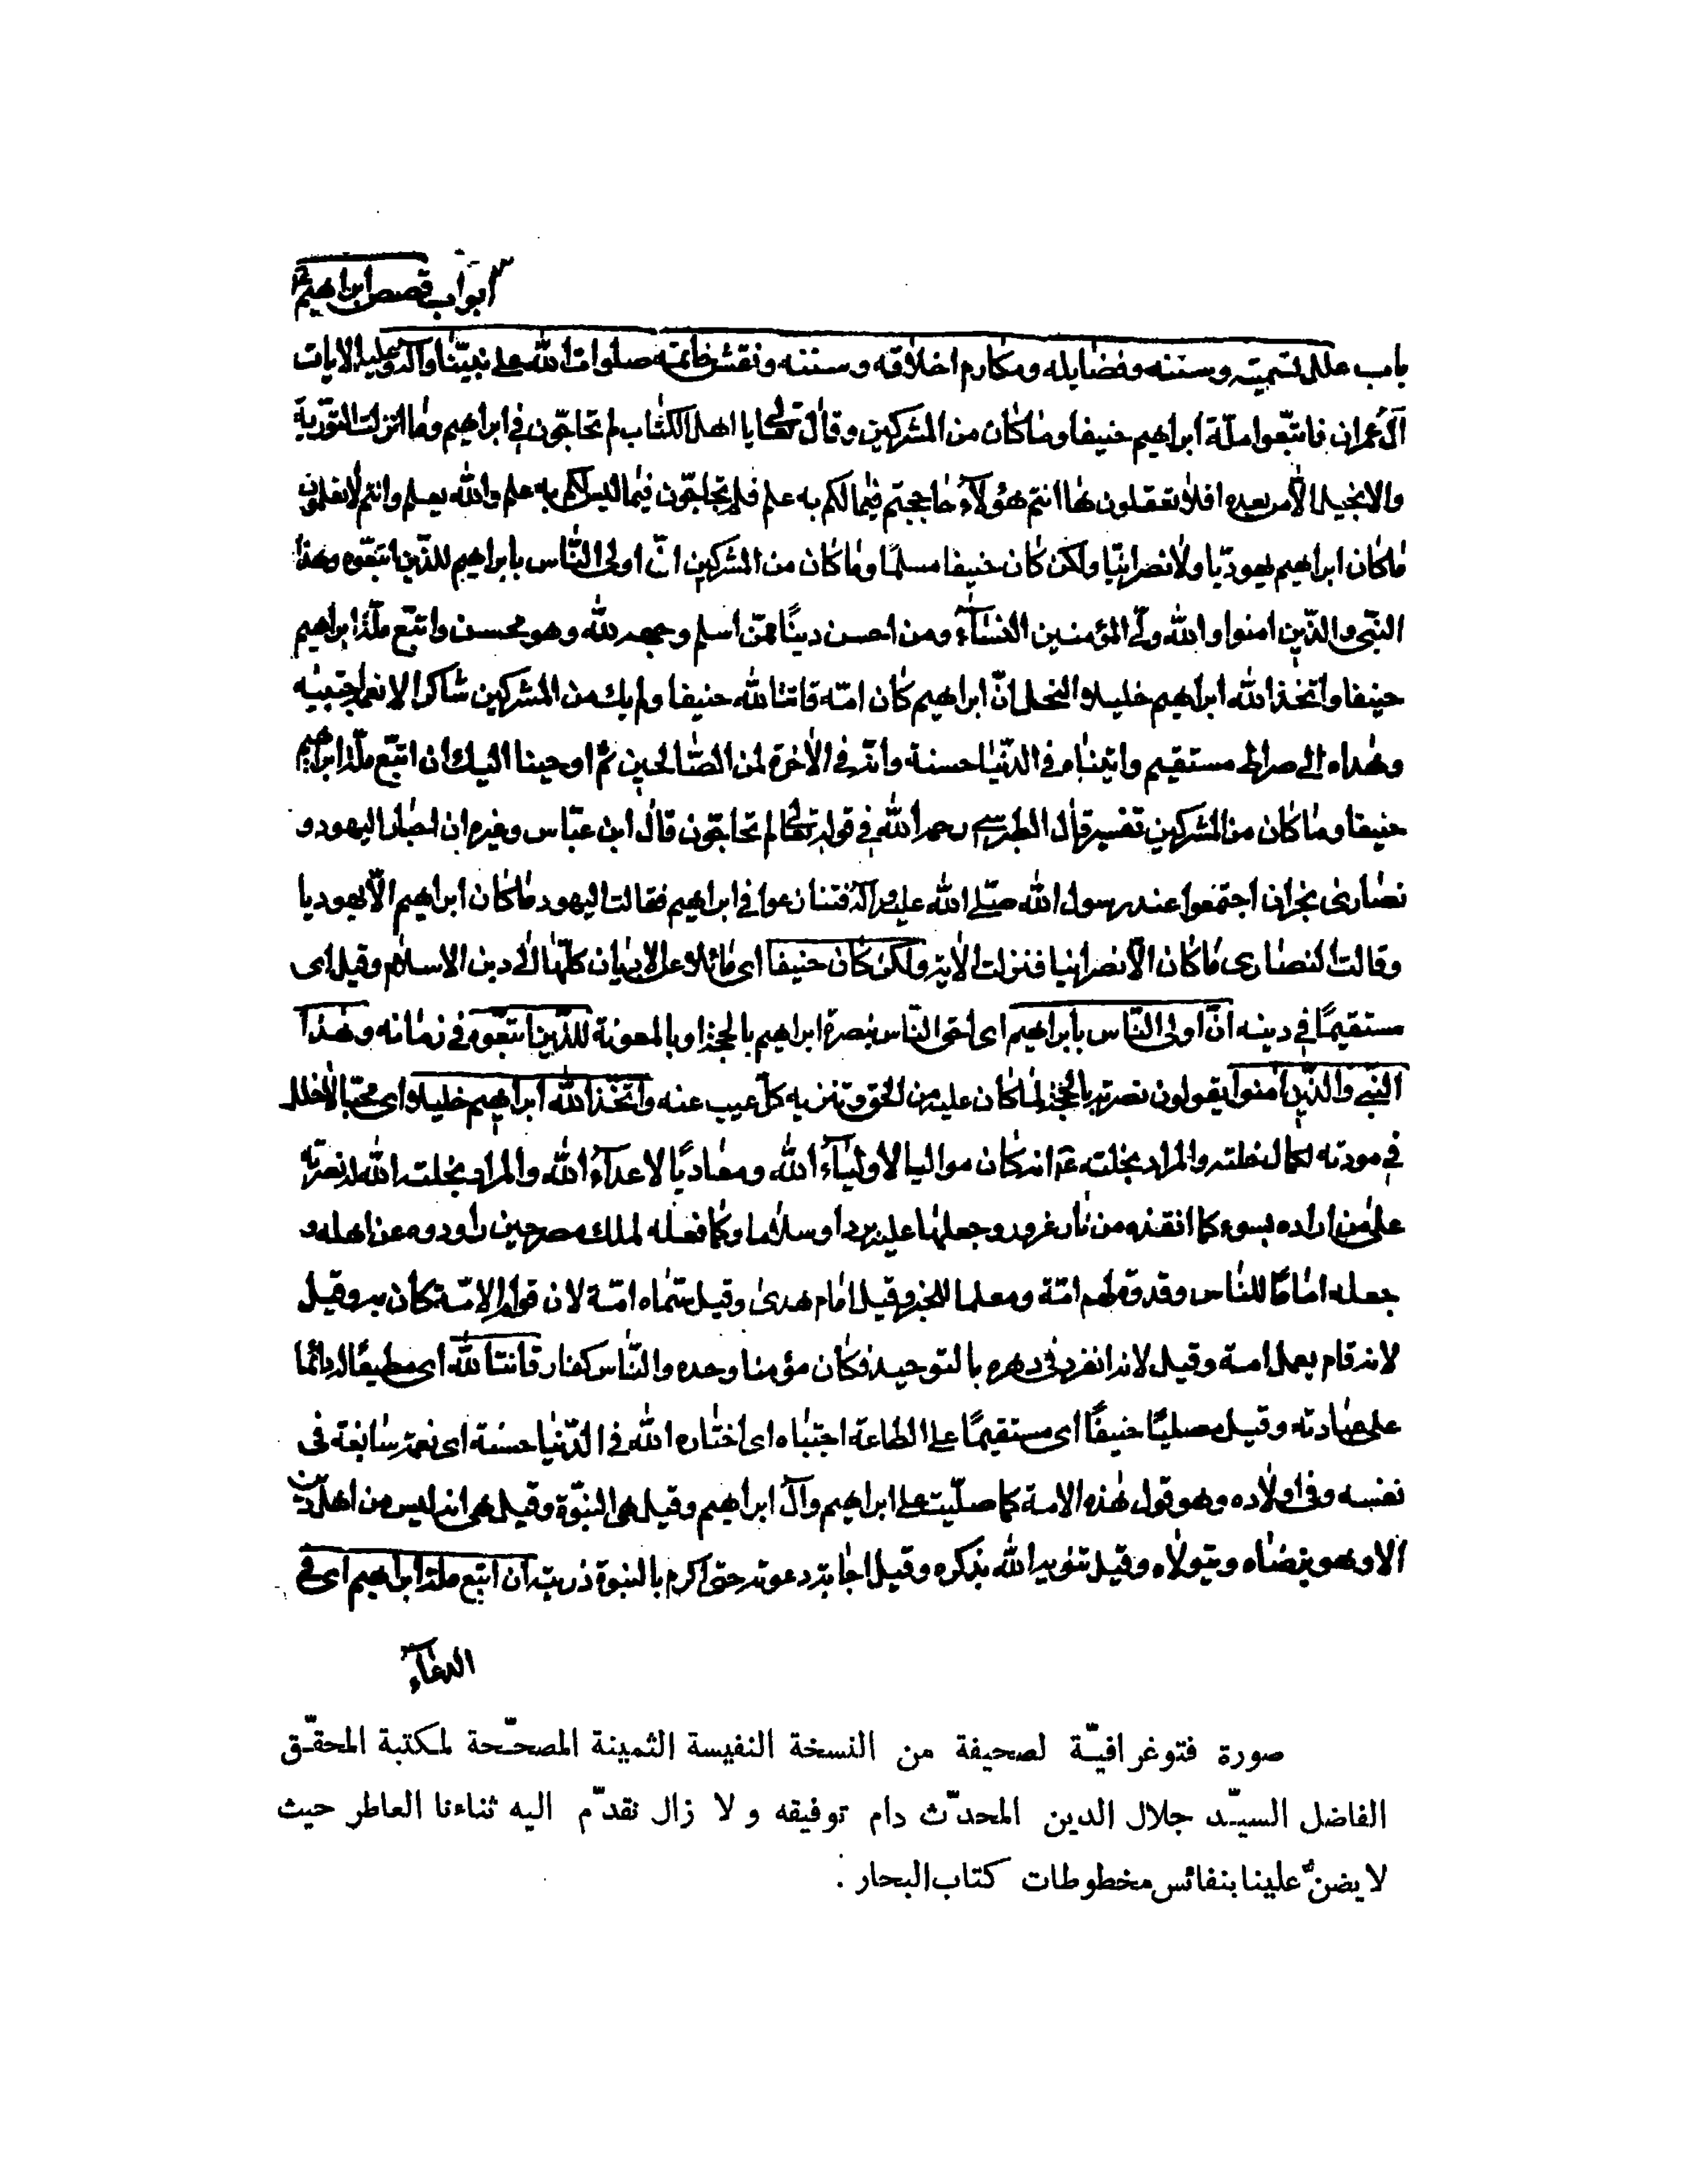 ابواب قصص ابراهيم ع
باب علل تسميته وسننه وفضايله ومكارم اخلاقه وسننه ونقش خاتمه صلوات الله على نبيّنا وآله وعليه الايات
آل عمران فاتبّعوا ملّة ابراهيم حنيفا وما كان من المشركين وقال تعالى يا اهل الكتاب لم تحاجّون في ابراهيم وما انزلت التّورية
والانجيل الّا من بعده افلا تعقلون ها انتم هؤلاء حاججتم فيما لكم به علم فلم تحاجّون فيما ليس لكم به علم والله يعلم وانتم لا تعلمون
ما كان ابراهيم يهوديّا ولا نصرانيّا ولكن كان حنيفا مسلمًا وما كان من المشركين انّ اولى النّاس بابراهيم للذّين اتبّعوه وهذا
النبّى والذّين امنوا والله ولّى المؤمنين النسّاء ومن احسن دينًا ممّن اسلم وجهه لله وهو محسن واتبّع ملّة ابراهيم
حنيفا واتّخذ الله ابراهيم خليلا والنحل انّ ابراهيم كان امّة قانتا لله حنيفا ولم يك من المشركين شاكرا لانعمه اجتبيه
وهداه الى صراط مستقيم واتيناه في الدّنيا حسنة وانّه في الاخرة لمن الصّالحين ثمّ اوحينا اليك ان اتبّع ملّة ابراهيم
حنيفا وما كان من المشركين تفسير قال الطبرسي رحمه الله في قوله تعالى لم تحاجّون قال ابن عبّاس وغيره ان احبار اليهود و
نصارى نجران اجتمعوا عند رسول الله صلّى الله عليه وآله فتنازعوا في ابراهيم فقالت اليهود ما كان ابراهيم الّا يهوديا
وقالت النصارى ما كان الّا نصرانيا فنزلت الاية ولكن كان حنيفا اى مائلا عن الاديان كلّها الى دين الاسلام وقيل اى
مستقيمًا في دينه انّ اولى النّاس بابراهيم اى احق النّاس بنصرة ابراهيم بالحجة او بالمعونة للذّين اتبّعوه في زمانه وهذا
النبّي والذّين آمنوا يقولون نصرته بالحجة لما كان عليه من الحق وتنزيه كلّ عيب عنه واتّخذ الله ابراهيم خليلا اى محبّا لا خلل
في مودته لكمال خلته والمراد بخلته انه كان مواليا لاولياء الله ومعاديًا لاعداء الله والمراد بخلته الله له نصرته
على من اراده بسوء كما انقذه من نار نمرود وجعلها عليه بردا وسلاما وكما فعله لملك مصر حين راوده عن اهله و
جعله امامًا للناس وقدوة لهم امّة ومعلما للخير وقيل امام هدى وقيل سمّاه امّة لان قوام الامّة كان به وقيل
لانه قام بعمل امة وقيل لانه انفرد في دهره بالتوحيد فكان مؤمنا وحده والنّاس كفار قانتا لله اى مطيعًا له دائما
على عبادته وقيل مصليًا حنيفًا اى مستقيمًا على الطاعة اجتباه اى اختاره الله في الدّنيا حسنة اى نعمة سابغة في
نفسه وفي اولاده وهو قول هذه الامة كما صلّيت على ابراهيم وآل ابراهيم وقيل هي النبّوة وقيل هي انه ليس من اهل دين
الا وهو يرضاه ويتولاه وقيل تنويه الله بذكره وقيل اجابة دعوته حتى اكرم بالنبوة ذريته ان اتبّع ملّة ابراهيم اى في
الدعاء
صورة فتوغرافيّة لصحيفة من النسخة النفيسة الثمينة المصحّحة لمكتبة المحقّق
الفاضل السيّد جلال الدين المحدّث دام توفيقه و لا زال نقدّم اليه ثناءنا العاطر حيث
لا يضنّ علينا بنفائس مخطوطات كتاب البحار .